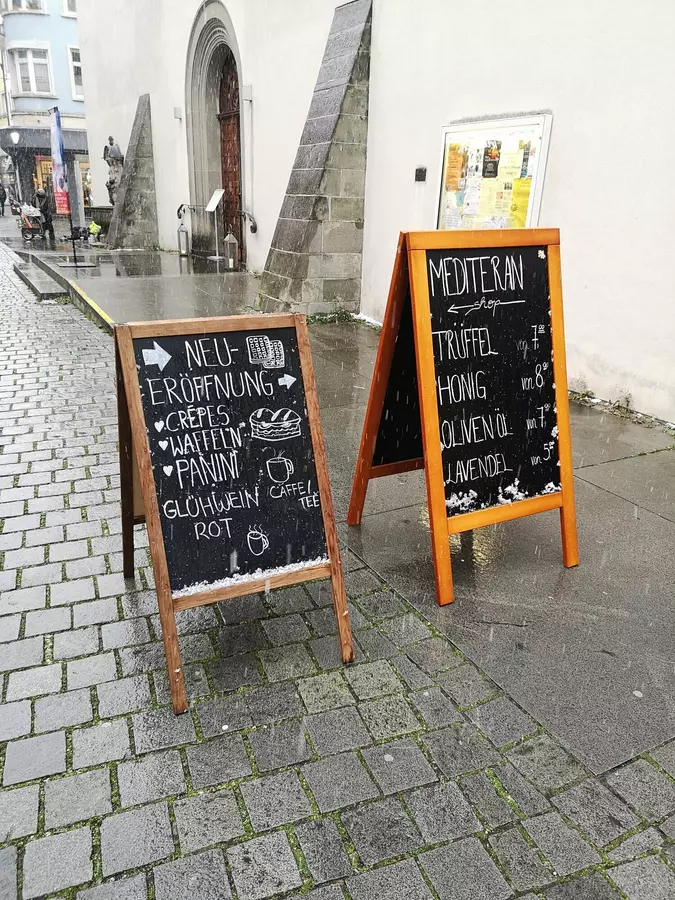 NEU-
ERÖFFNUNG
CRÊPES
WAFFELN
PANINI
GLÜHWEIN
ROT
CAFFE/
TEE
MEDITERAN
shop
TRÜFFEL von 7
HONIG von 8
OLIVEN ÖL von 7
LAVENDEL von 5